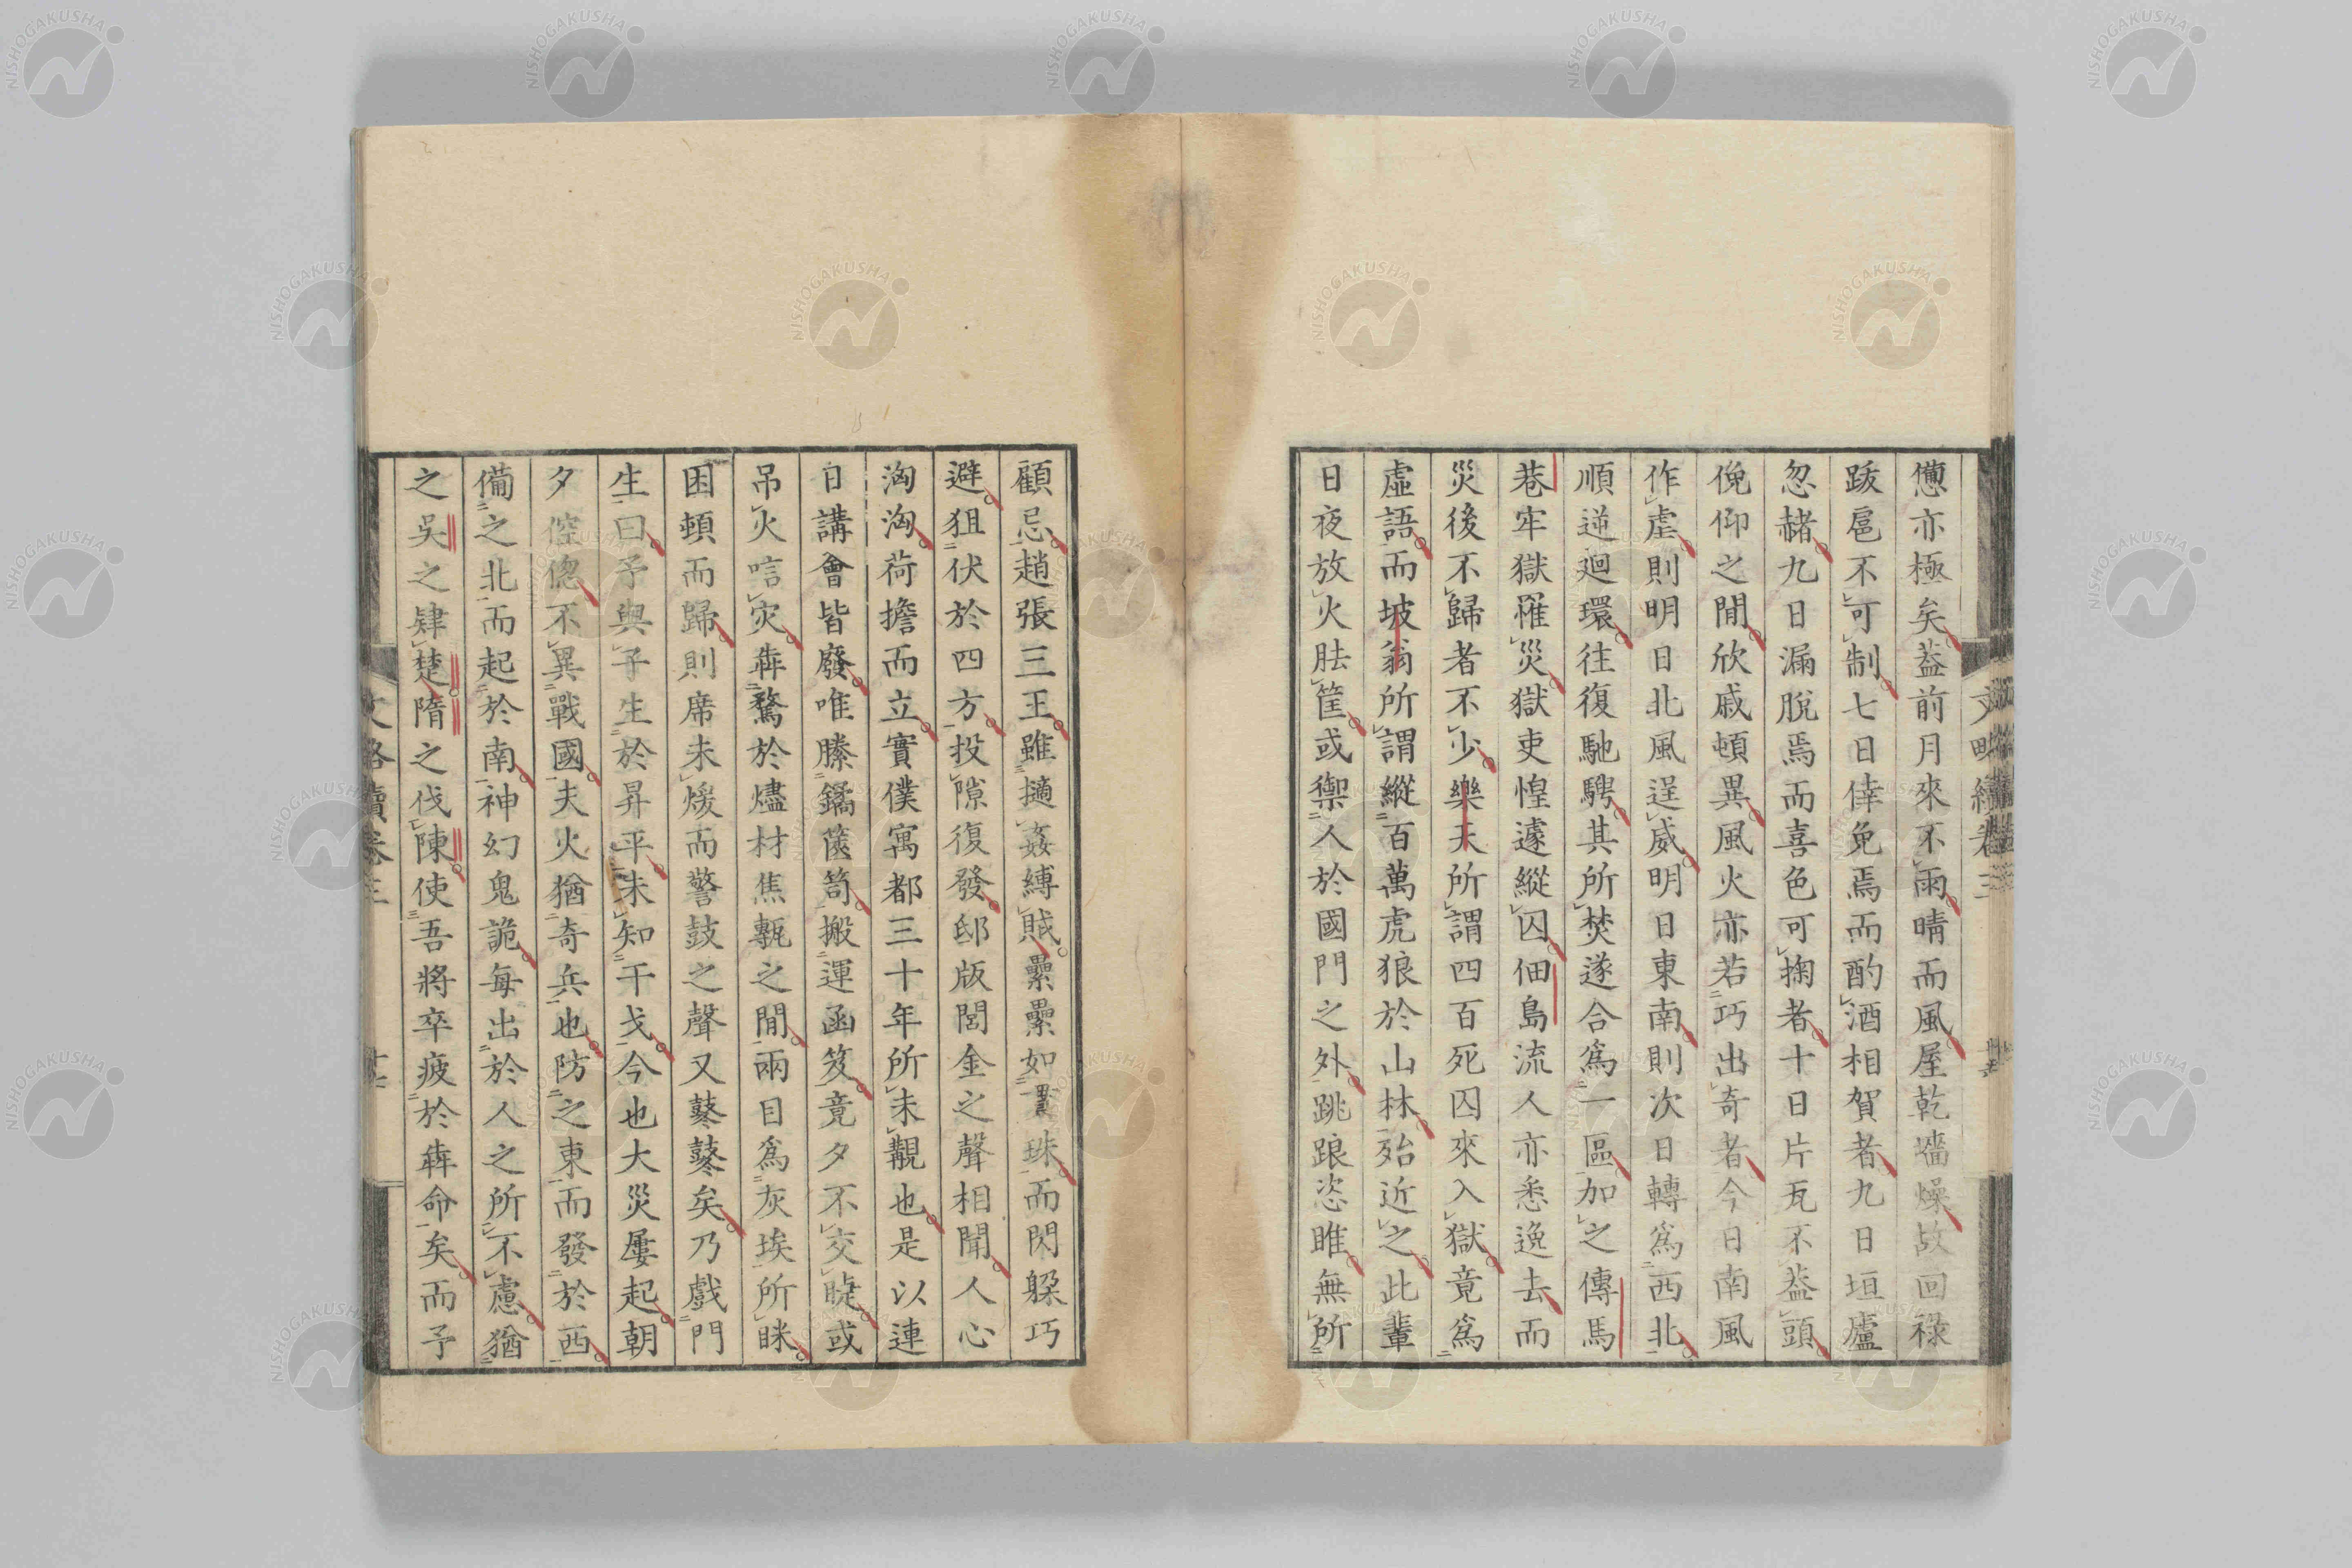 憊亦極矣葢前月來不雨晴而風屋乾墻燥故回祿
跋扈不可制七日倖免焉而酌酒相賀者九日垣廬
忽赭九日漏脫焉而喜色可掬者十日片瓦不葢頭
俛仰之間欣戚頓異風火亦若巧出奇者今日南風
作虐則明日北風逞威明日東南則次日轉爲西北
順逆廻環往復馳騁其所焚遂合爲一區加之傳馬
巷牢獄罹災獄吏惶遽縱囚佃島流人亦悉逸去而
災後不歸者不少樂天所謂四百死囚來入獄竟爲
虛語而坡翁所謂縱百萬虎狼於山林殆近之此輩
日夜放火胠篋或禦人於國門之外跳踉恣睢無所
顧忌趙張三王雖擿姦縛賊纍纍如貫珠而閃躱巧
避狙伏於四方投隙復發邸版閭金之聲相聞人心
洶洶荷擔而立實僕寓都三十年所未覩也是以連
日講會皆廢唯縢鐍篋笥搬運函笈竟夕不交睫或
吊火唁灾犇騖於燼材焦甎之間兩目爲灰埃所眯
困頓而歸則席未煖而警鼓之聲又鼕鼕矣乃戲門
生曰予與子生於昇平未知干戈今也大災屢起朝
夕倥偬不異戰國夫火猶奇兵也防之東而發於西
備之北而起於南神幻鬼詭每出於人之所不慮猶
之吳之肄楚隋之伐陳使吾將卒疲於犇命矣而予
文略續卷三